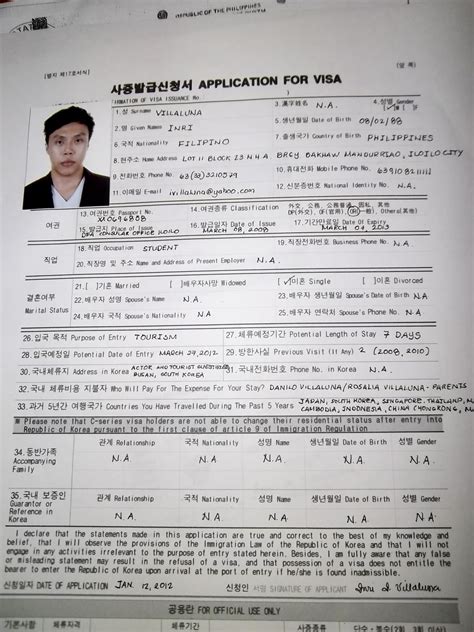 REPUBLIC OF THE PHILIPPINES
[별지 제17호서식]
(앞 쪽)
사증발급신청서 APPLICATION FOR VISA
CONFIRMATION OF VISA ISSUANCE No.
1.성 Surname VILLALUNA
3.漢字姓名 N.A.
4.성별 Gender
[✓]M [ ]F
2.명 Given Names INRI
5.생년월일 Date of Birth 08/02/88
6.국적 Nationality FILIPINO
7.출생국가 Country of Birth PHILIPPINES
8.현주소 Home Address LOT 11 BLOCK 13 NHA BRGY BAKHAW MANDURRIAO, ILOILO CITY
9.전화번호 Phone No. 63(33)3210529
10.휴대전화 Mobile Phone No.
11.이메일 E-mail ivillaluna@yahoo.com
12.신분증번호 National Identity No. N.A.
여권
13.여권번호 Passport No. XX0696808
14.여권종류 Classification 외교, 공무, 공용, 일반, 기타
DP(외교), OF(官用), (OR(一般), Others(其他)
15.발급지 Place of Issue DFA CONSULAR OFFICE ILOILO
16.발급일자 Date of Issue MARCH 05, 2008
17.기간만료일 Date Of Expiry MARCH 04, 2013
직업
18.직업 Occupation STUDENT
19.직장전화번호 Business Phone No. N.A.
20.직장명 및 주소 Name and Address of Present Employer N.A.
결혼여부
Marital Status
21.[ ]기혼 Married [ ]배우자사망 Widowed [✓]미혼 Single [ ]이혼 Divorced
22.배우자 성명 Spouse's Name N.A.
23.배우자 생년월일 Spouse's Date of Birth N.A.
24.배우자 국적 Spouse's Nationality N.A
25.배우자 연락처 Spouse's Phone No. N.A.
26.입국 목적 Purpose of Entry TOURISM
27.체류예정기간 Potential Length of Stay 7 DAYS
28.입국예정일 Potential Date of Entry MARCH 29,2012
29.방한사실 Previous Visit (If Any) 2 (2008, 2010)
30.국내체류지 Address in Korea BUSAN, SOUTH KOREA
31.국내전화번호 Phone No. in Korea N.A.
32.국내 체류비용 지불자 Who Will Pay For The Expense For Your Stay? DANILO VILLALUNA/ROSALIA VILLALUNA-PARENTS
33.과거 5년간 여행국가 Countries You Have Travelled During The Past 5 Years JAPAN, SOUTH KOREA, SINGAPORE, THAILAND,
CAMBODIA, INDONESIA, CHINA (HONGKONG,
※ Please note that C-series visa holders are not able to change their residential status after entry into
Republic of Korea pursuant to the first clause of article 9 of Immigration Regulation
34.동반가족
Accompanying
Family
관계 Relationship 국적 Nationality 성명 Name 생년월일 Date of Birth 성별 Gender
N.A N.A N.A N.A N.A
35.국내 보증인
Guarantor or
Reference in
Korea
관계 Relationship 국적 Nationality 성명 Name 생년월일 Date of Birth 성별 Gender
N.A N.A N.A. N.A. N.A
I declare that the statements made in this application are true and correct to the best of my knowledge and
belief, that I will observe the provisions of the Immigration Law of the Republic of Korea and that I will not
engage in any activities irrelevant to the purpose of entry stated herein. Besides, I am fully aware that any false
or misleading statement may result in the refusal of a visa, and that possession of a visa does not entitle the
bearer to enter the Republic of Korea upon arrival at the port of entry if he/she is found inadmissible.
신청일자 DATE OF APPLICATION JAN. 12, 2012
신청인 서명 SIGNATURE OF APPLICANT Inri d. Villaluna
공용란 FOR OFFICIAL USE ONLY
기본사항 체류자격 체류기간